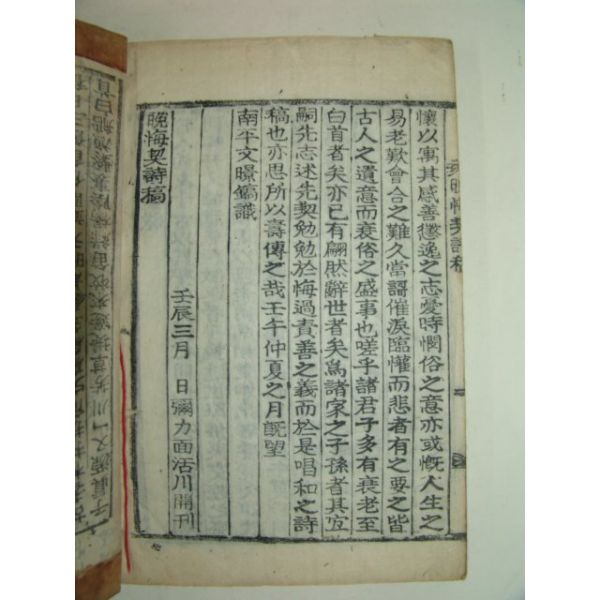 懷以寓其感善懲逸之志愛時憫俗之意亦或慨人生之
易老歎會合之難久當謌催淚臨懽而悲者有之要之皆
古人之遺意而衰俗之盛事也嗟乎諸君子多有衰老至
白首者矣亦已有翩然辭世者矣爲諸家之子孫者其宜
嗣先志述先契勉勉於悔過責善之義而於是唱和之詩
稿也亦思所以壽傳之哉壬午仲夏之月旣望
南平文璟鎬識
壬辰三月 日彌力面活川開刊
晩悔契詩稿
晩悔契詩稿